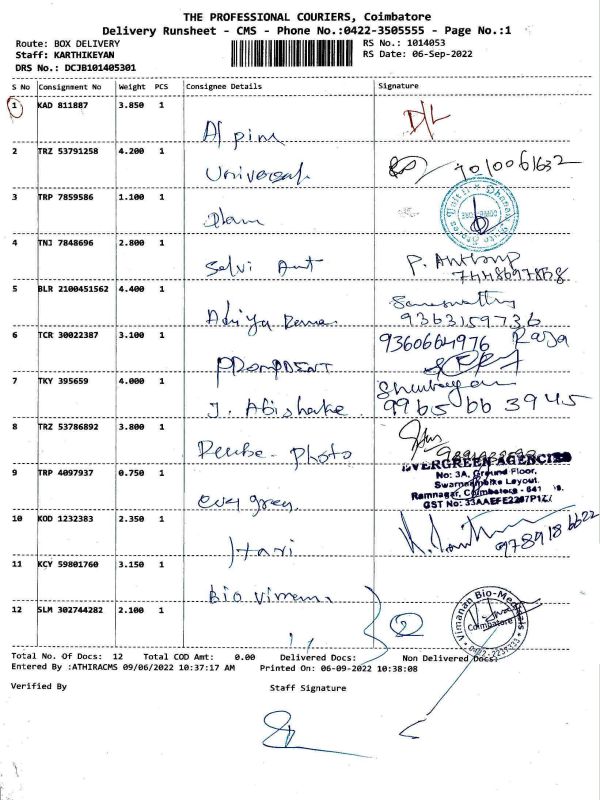 THE PROFESSIONAL COURIERS, Coimbatore
Delivery Runsheet - CMS - Phone No.:0422-3505555 - Page No.:1
Route: BOX DELIVERY
RS No.: 1014053
Staff: KARTHIKEYAN
RS Date: 06-Sep-2022
DRS No.: DCJB101405301
S No Consignment No Weight PCS Consignee Details Signature
1 KAD 811887 3.850 1
Alpine D/L
2 TRZ 53791258 4.200 1
Universal 7010061632
3 TRP 7859586 1.100 1
4 TNJ 7848696 2.800 1
Selvi Ant P. Anthony
7448697858
5 BLR 2100451562 4.400 1
Saraswathy
9363159736
6 TCR 30022387 3.100 1
9360664976 Raja
PROMPDENT
7 TKY 395659 4.000 1
Shenbagam
J. Abishake 9965 bb 3945
8 TRZ 53786892 3.800 1
Photo
EVERGREEN AGENCIES
9 TRP 4097937 0.750 1
No: 3A, Ground Floor,
Swarnambika Layout,
Ramnagar, Coimbatore - 641
GST No: 33AAEFE2287P1Z
ever green
10 KOD 1232383 2.350 1
Hari 9789186622
11 KCY 59801760 3.150 1
Bio Vimana
12 SLM 302744282 2.100 1
2
Vimanan Bio-Medicals
Coimbatore
Total No. Of Docs: 12 Total COD Amt: 0.00 Delivered Docs: Non Delivered Docs:
Entered By :ATHIRACMS 09/06/2022 10:37:17 AM Printed On: 06-09-2022 10:38:08
Verified By Staff Signature